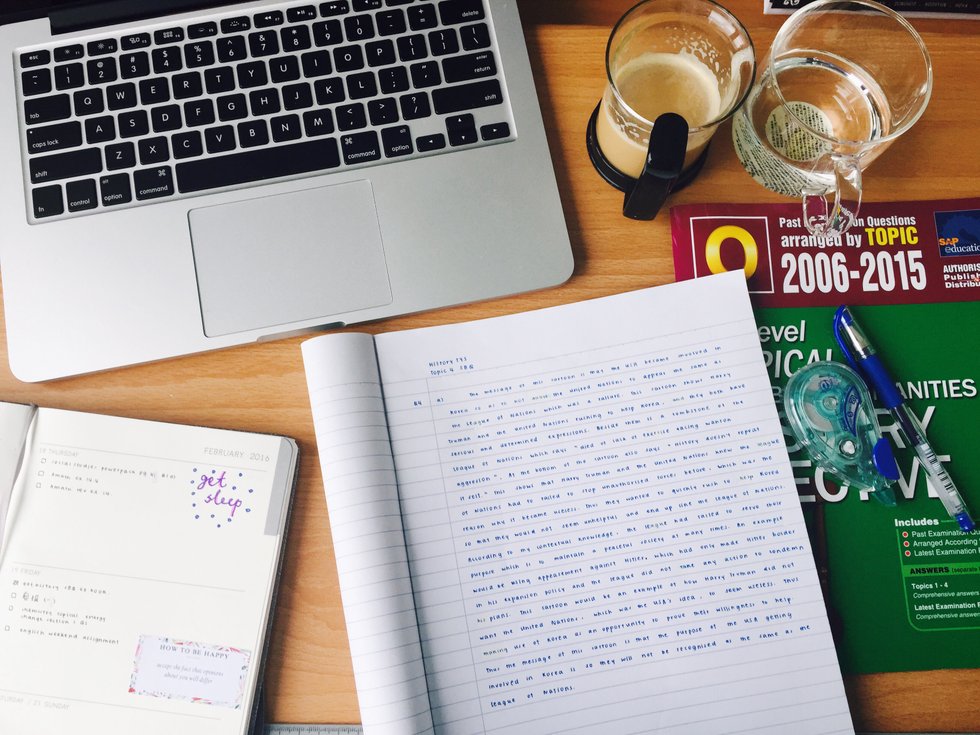 esc
delete
tab
return
enter
caps lock
shift
shift
fn
control
option
command
command
option
Past
Questions
arranged by TOPIC
O
2006-2015
SAP
education
AUTHORIS
Publish
Distribu
Level
ANITIES
Includes
Past Examination Qu
Arranged According
Latest Examination
ANSWERS (separate
Topics 1 - 4
Comprehensive answers
Latest Examination
Comprehensive answers
History TYS
a) The message of this cartoon is that the USA became involved in
Korea so as to not make the United Nations to appear the same as
the League of Nations which was a failure. This cartoon shows Harry
Truman and the United Nations rushing to help Korea, and they both have
serious and determined expressions. Beside them is a tombstone of the
League of Nations which says "died of lack of exercise facing wanton
aggression". At the bottom of the cartoon also says "History doesn't repeat
itself". This shows that Harry Truman and the United Nations knew the League
of Nations had to failed to stop unauthorised forces before, which was the
reason why it became useless. Thus they wanted to quickly rush to help Korea
so that they would not seem unhelpful and end up like the League of Nations.
According to my contextual knowledge, the League had failed to serve their
purpose which is to maintain a peaceful society at many times. An example
would be using appeasement against Hitler, which had only made Hitler bolder
in his expansion policy and the League did not take any action to condemn
his plans. This cartoon would be an example of how Harry Truman did not
want the United Nations, which was the USA's idea, to seem useless. Thus
making use of Korea as an opportunity to prove their willingness to help.
Thus the message of this cartoon is that the purpose of the USA getting
involved in Korea is so they will not be recognised as the same as the
League of Nations.
18 THURSDAY
FEBRUARY 2016
get
sleep
19 FRIDAY
english weekend assignment
HOW TO BE HAPPY
accept the fact that opinions
about you will differ
21 SUNDAY